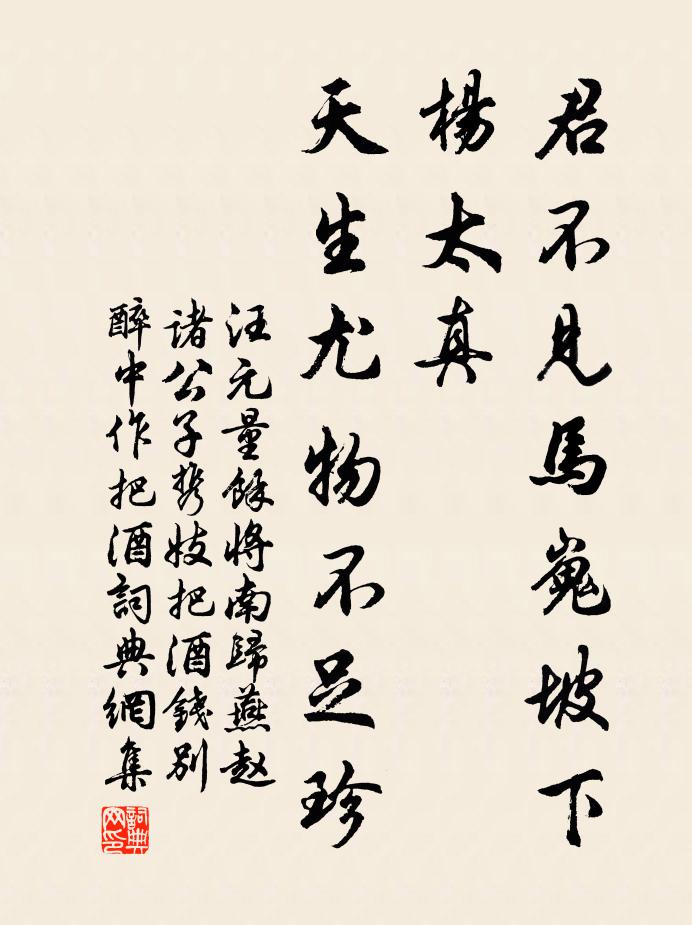 君不見馬嵬坡下
楊太真
天生尤物不足珍
汪元量餘將南歸燕趙
諸公子携妓把酒錢別
醉中作把酒詞典網集
詞典網印